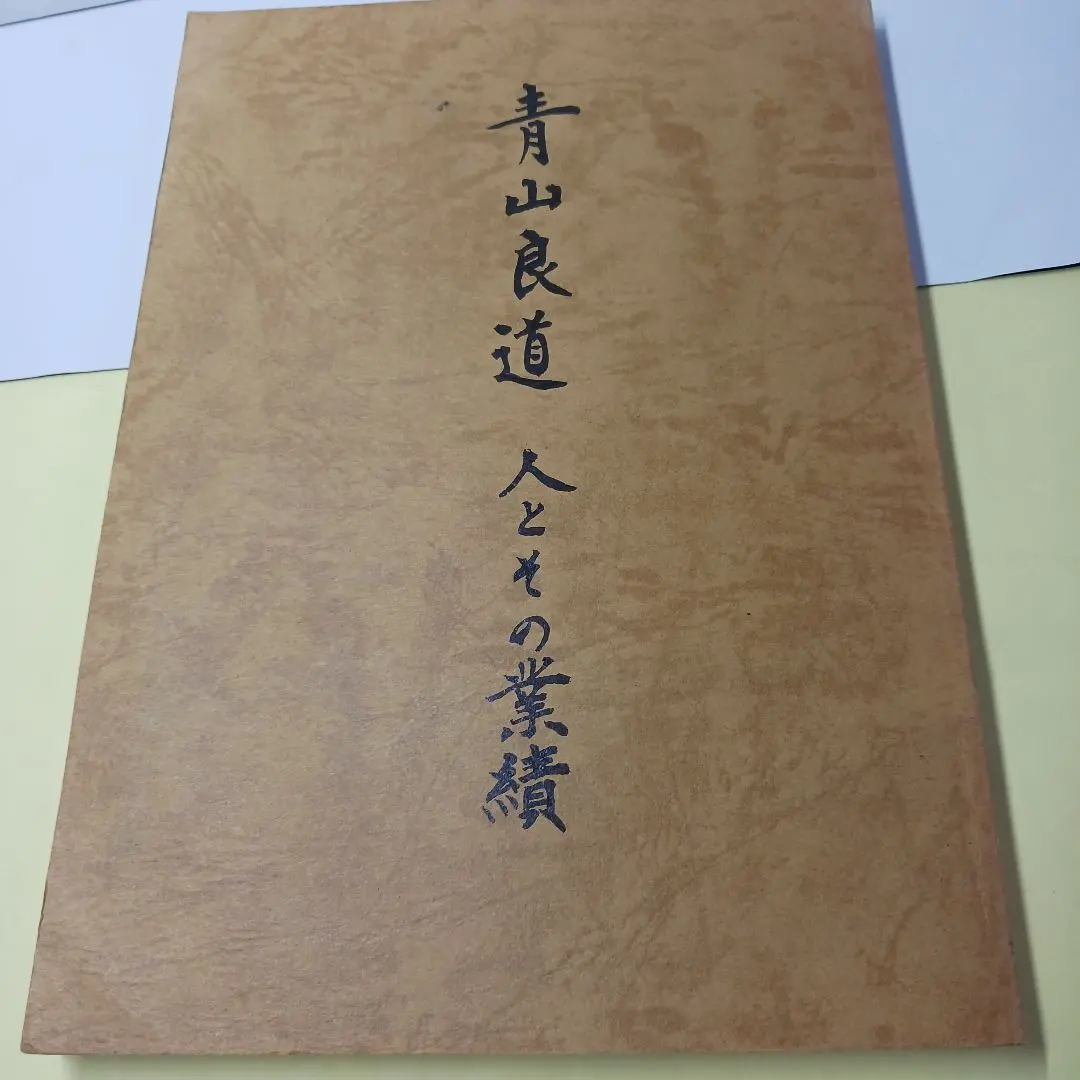 青山良道 人とその業績